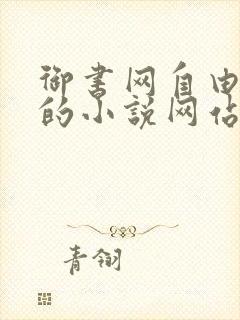 御书网自由
的小说网站
青翎